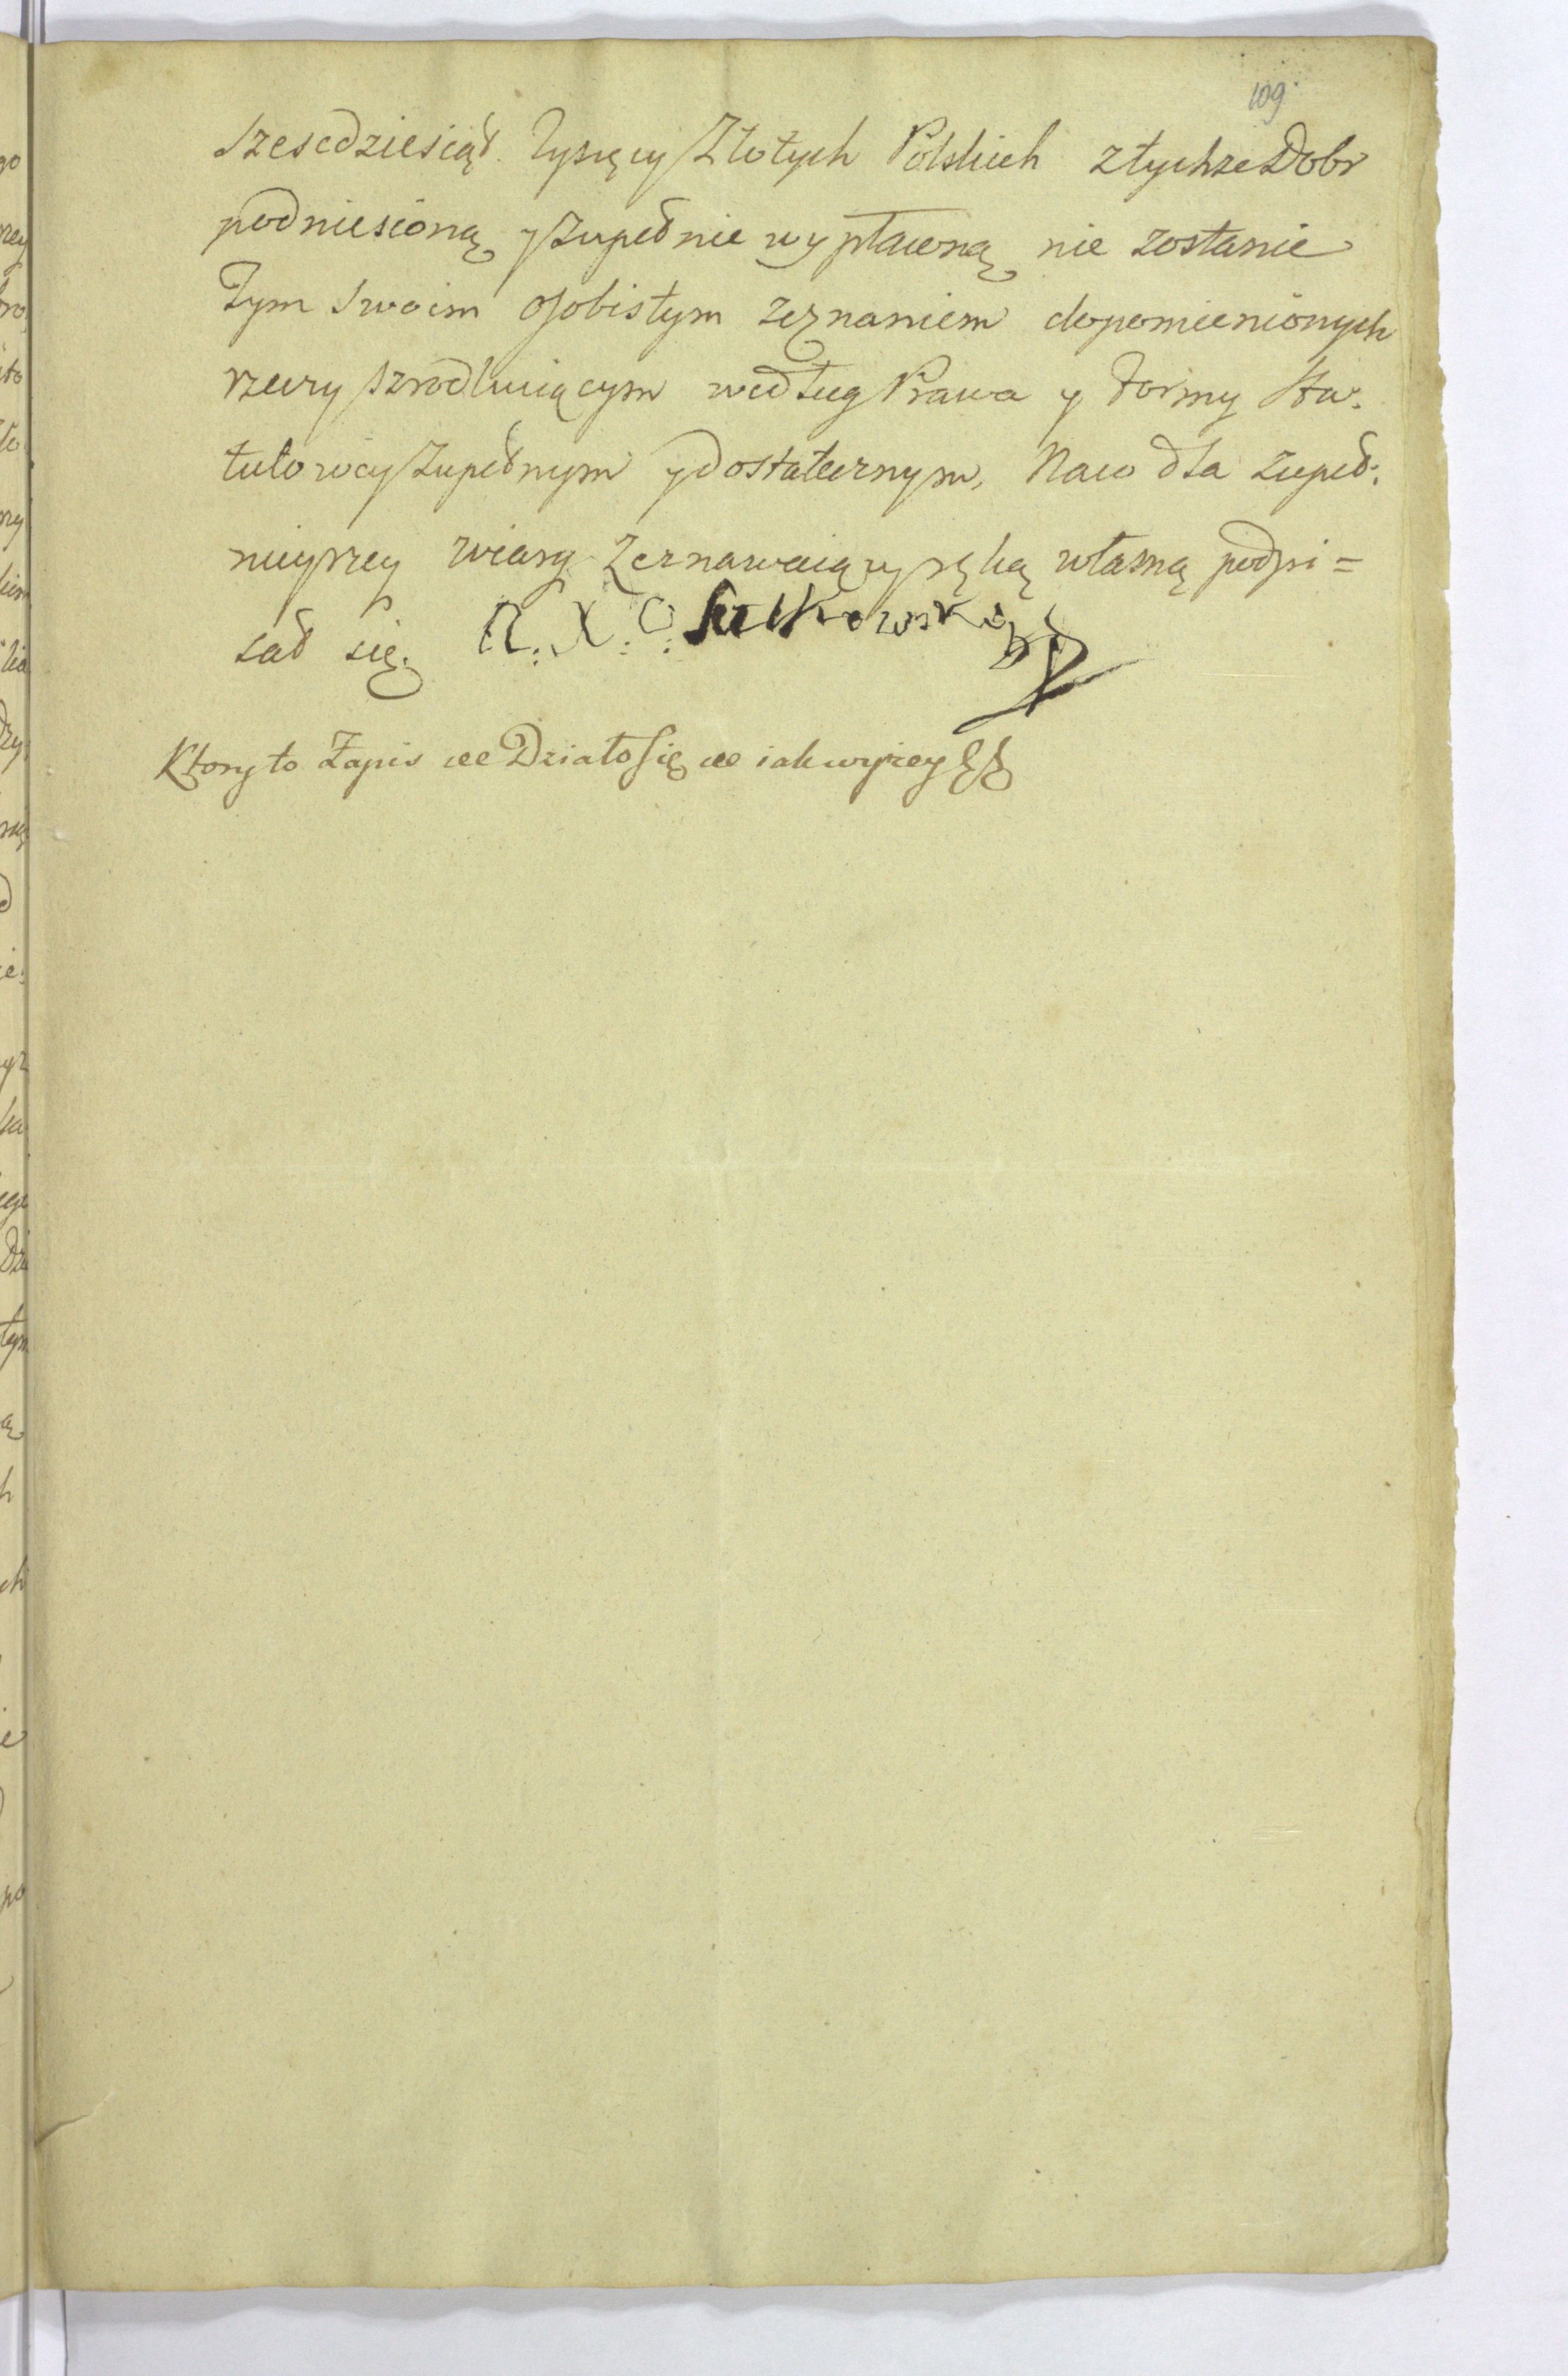 109
Szescdziesiąt Tysięcy Złotych Polskich z tychze Dobr
podniesioną y zupełnie wypłaconą nie zostanie
Tym Swoim osobistym zeznaniem dopomienionych
rzeczy szrodkuiącym według Prawa y Formy Sta:
tutowey zupełnym y dostatecznym, Naco dla zupeł:
nieyszey wiary Zeznawaiący ręką własną podpi=
sał się. A. X. O. Sułkowski
Ktory to Zapis ee Działo się ee iak wyżey